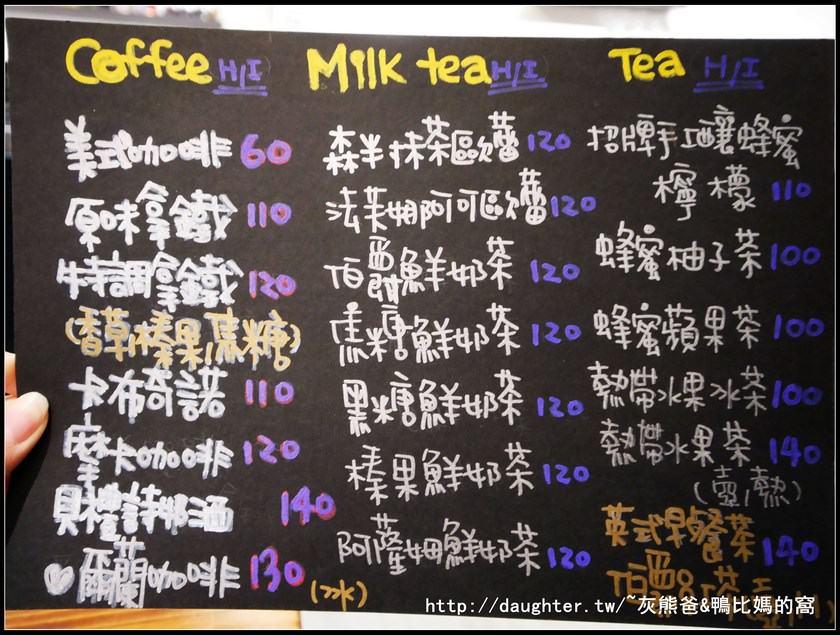 Coffee H/I
美式咖啡 60
原味拿鐵 110
特調拿鐵 120
(香草/榛果/焦糖)
卡布奇諾 110
摩卡咖啡 120
貝禮詩奶酒 140
♥爾蘭咖啡 130
(冰)
Milk tea H/I
森半抹茶歐蕾 120
法芙娜阿可歐蕾 120
伯爵鮮奶茶 120
焦糖鮮奶茶 120
黑糖鮮奶茶 120
榛果鮮奶茶 120
阿薩姆鮮奶茶 120
Tea H/I
招牌手工釀蜂蜜
檸檬 110
蜂蜜柚子茶 100
蜂蜜蘋果茶 100
熱帶水果冰茶 100
熱帶水果茶 140
(壺/熱)
英式早餐茶 140
伯爵茶
http://daughter.tw/~灰熊爸&鴨比媽的窩